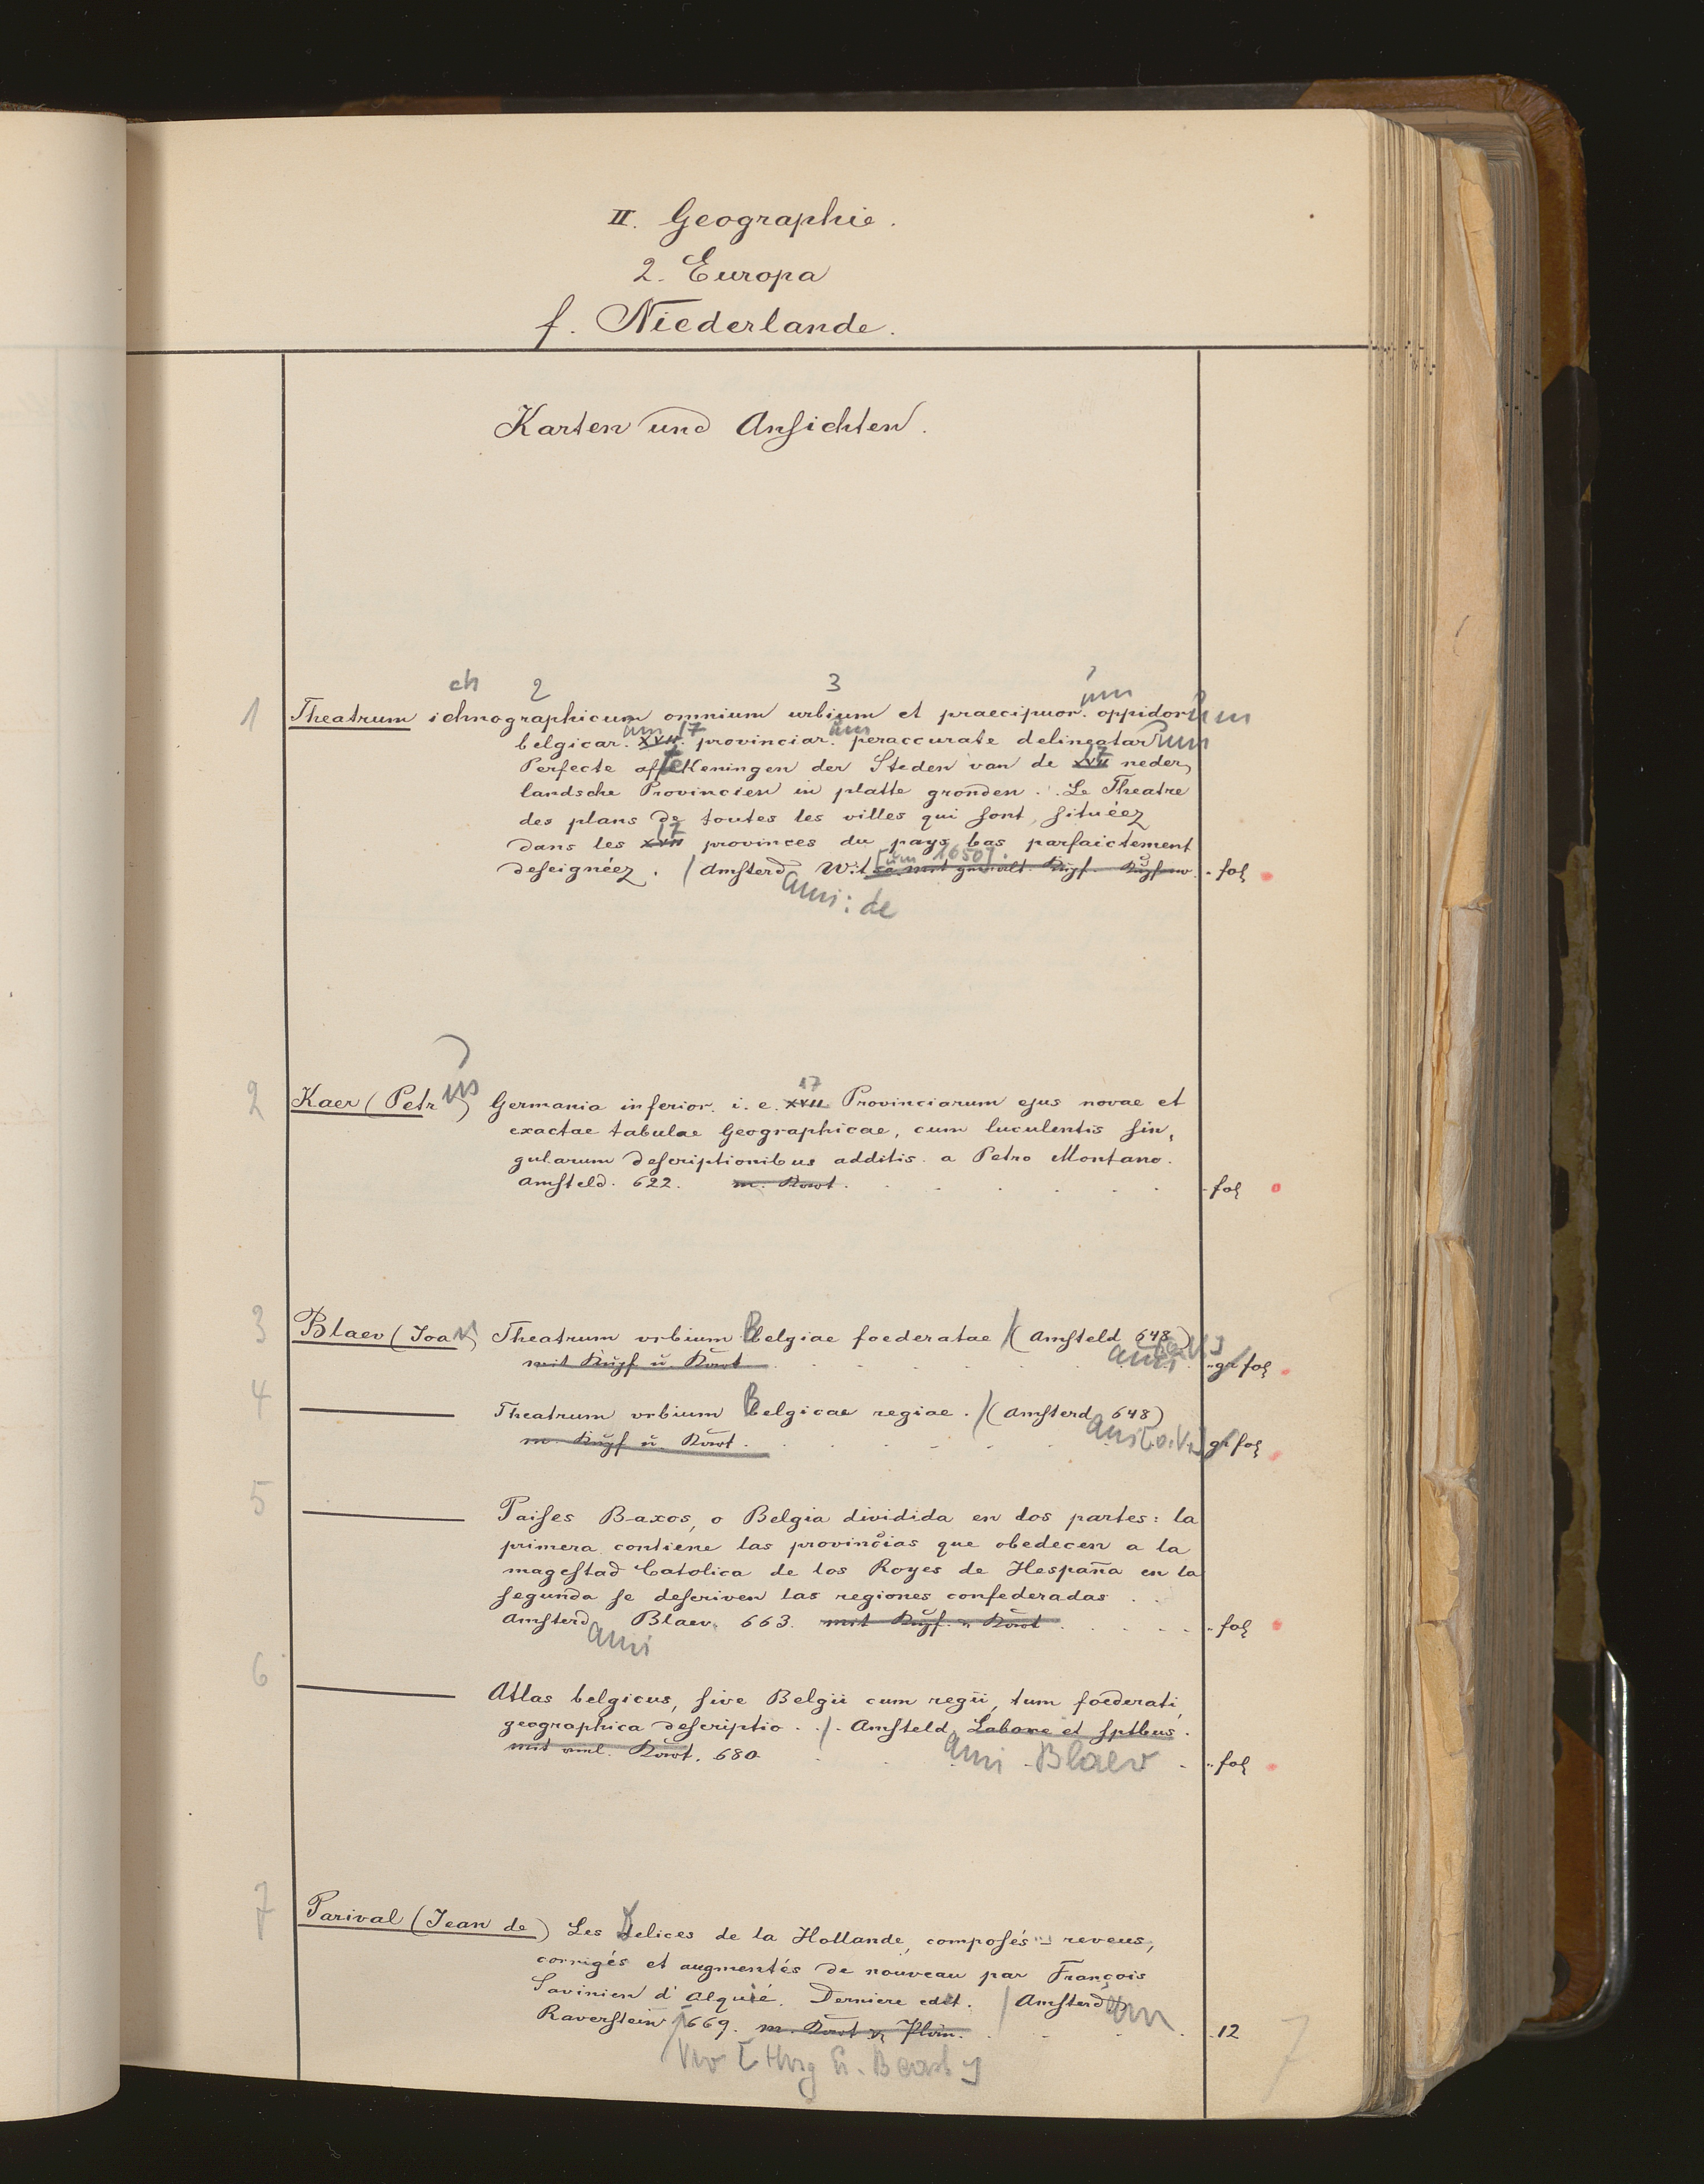 II. Geographie.
2. Europa
f. Niederlande.
Karten und Ansichten.
ch 2 3 um
1 Theatrum ichnographicum omnium urbium et praecipuor. oppidor um
belgicar. um XVII. 17 provinciar. um peraccurate delineatar um
Perfecte aftekeningen der Steden van de XVII 17 neder,
landsche Provincien in platte gronden. Le Theatre
des plans de toutes les villes qui sont, situéez
dans les XVII 17 provinces du pays bas parfaictement
deseignéez. / Amsterd Wit [um 1650]. fol
ami: de
2 Kaer (Petr us) Germania inferior. i. e. XVII 17 Provinciarum ejus novae et
exactae tabulae Geographicae, cum luculentis sin,
gularum descriptionibus additis. a Petro Montano.
Amsteld. 622. m. Kart. fol
3 Blaev (Joan) Theatrum vrbium Belgiae foederatae /( Amsteld 648)
mit Kupf u. Kart gr fol
4 Theatrum vrbium Belgicae regiae. /( Amsterd 648)
m. Kupf u. Kart. gr fol
5 Paises Baxos, o Belgia dividida en dos partes: la
primera contiene las provincias que obedecen a la
magestad Catolica de los Royes de Hespaña en la
segunda se descriven las regiones confederadas
Amsterd Blaev. 663. mit Kupf. u Kart fol
ami
6 Atlas belgicus, sive Belgii cum regii, tum foederati,
geographica descriptio. / Amsteld, Labore et sptbus.
mit Kart. 680 ami Blaev fol
7 Parival (Jean de) Les Delices de la Hollande, composés reveus,
corrigés et augmentés de nouveau par François
Savinien d'Alquié. Derniere edit. / Amsterd am
Raverstein 1669. m. Kart u Plän. 12
7